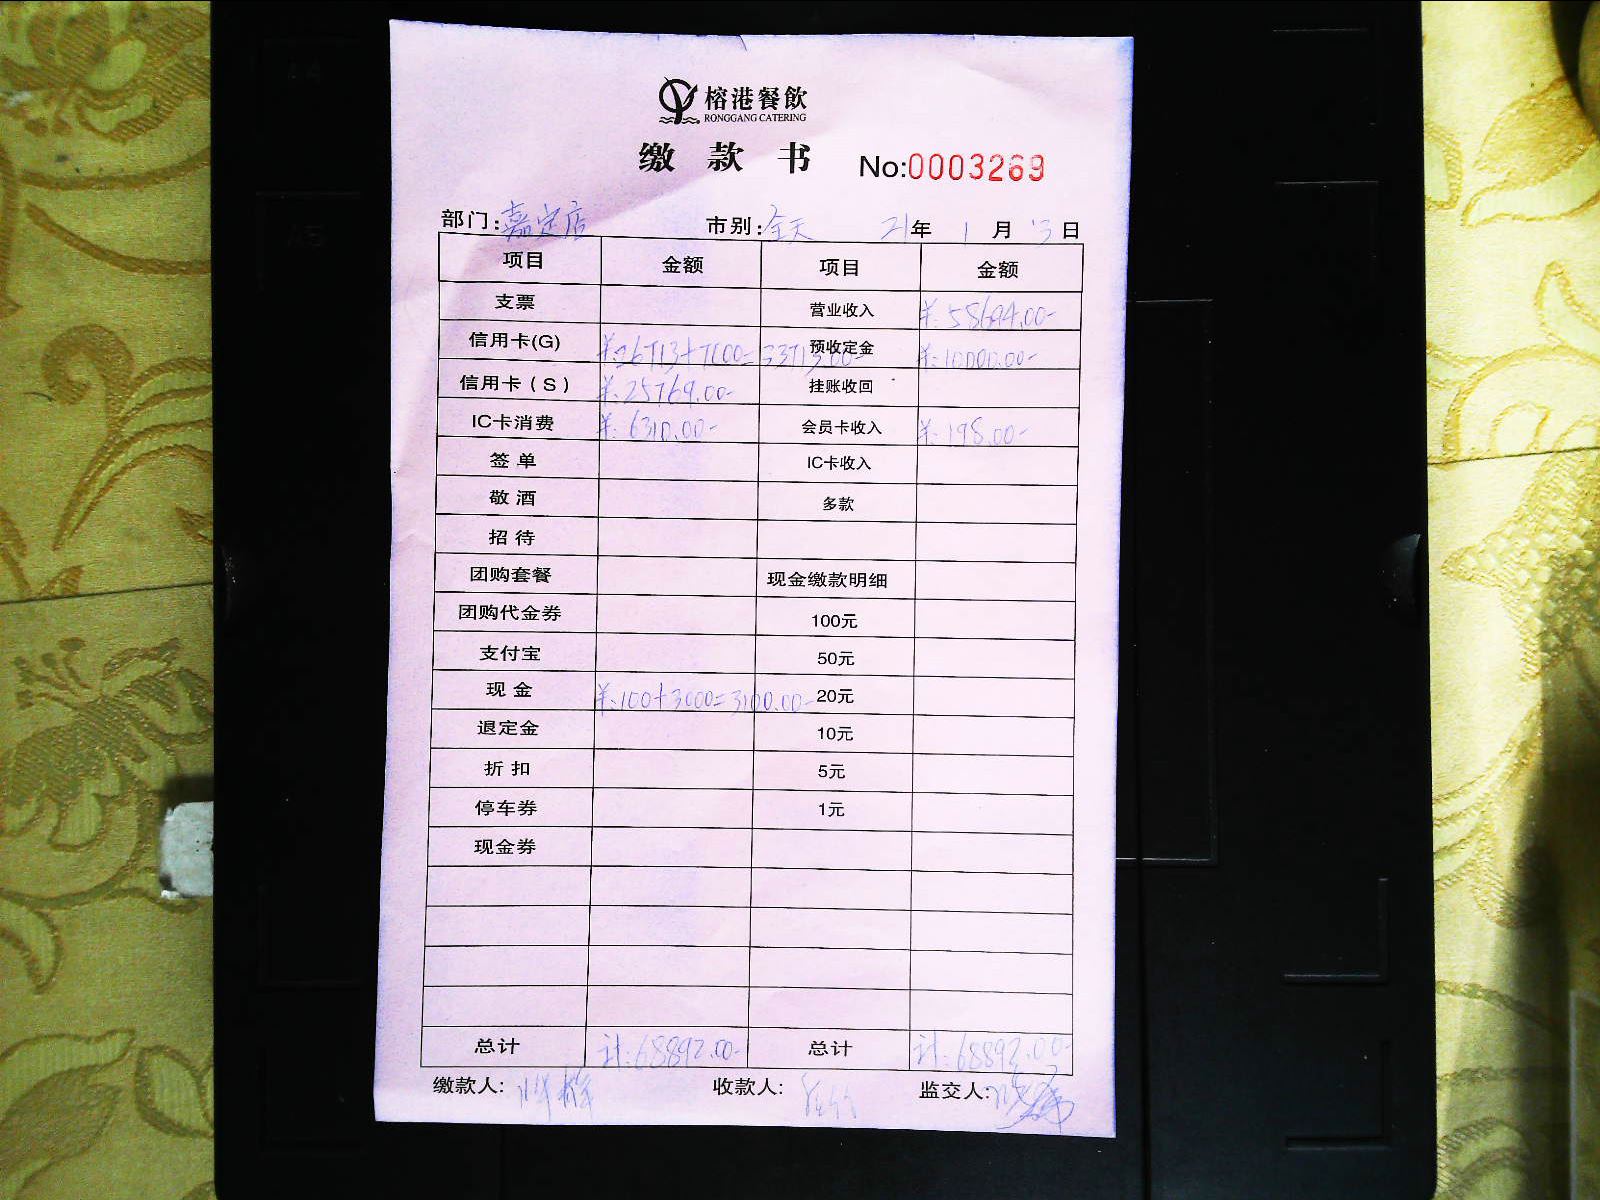 榕港餐飲
RONGGANG CATERING
缴款书 No:0003269
部门:嘉定店 市别:全天 21年1月3日
项目 金额 项目 金额
支票 营业收入 ¥:58694.00-
信用卡(G) ¥:26713+7000=33713.00- 预收定金 ¥:10000.00-
信用卡(S) ¥:25769.00- 挂账收回
IC卡消费 ¥:6310.00- 会员卡收入 ¥:198.00-
签单 IC卡收入
敬酒 多款
招待
团购套餐 现金缴款明细
团购代金券 100元
支付宝 50元
现金 ¥:100+3000=3100.00- 20元
退定金 10元
折扣 5元
停车券 1元
现金券
总计 计:68892.00- 总计 计:68892.00-
缴款人: 收款人: 监交人: